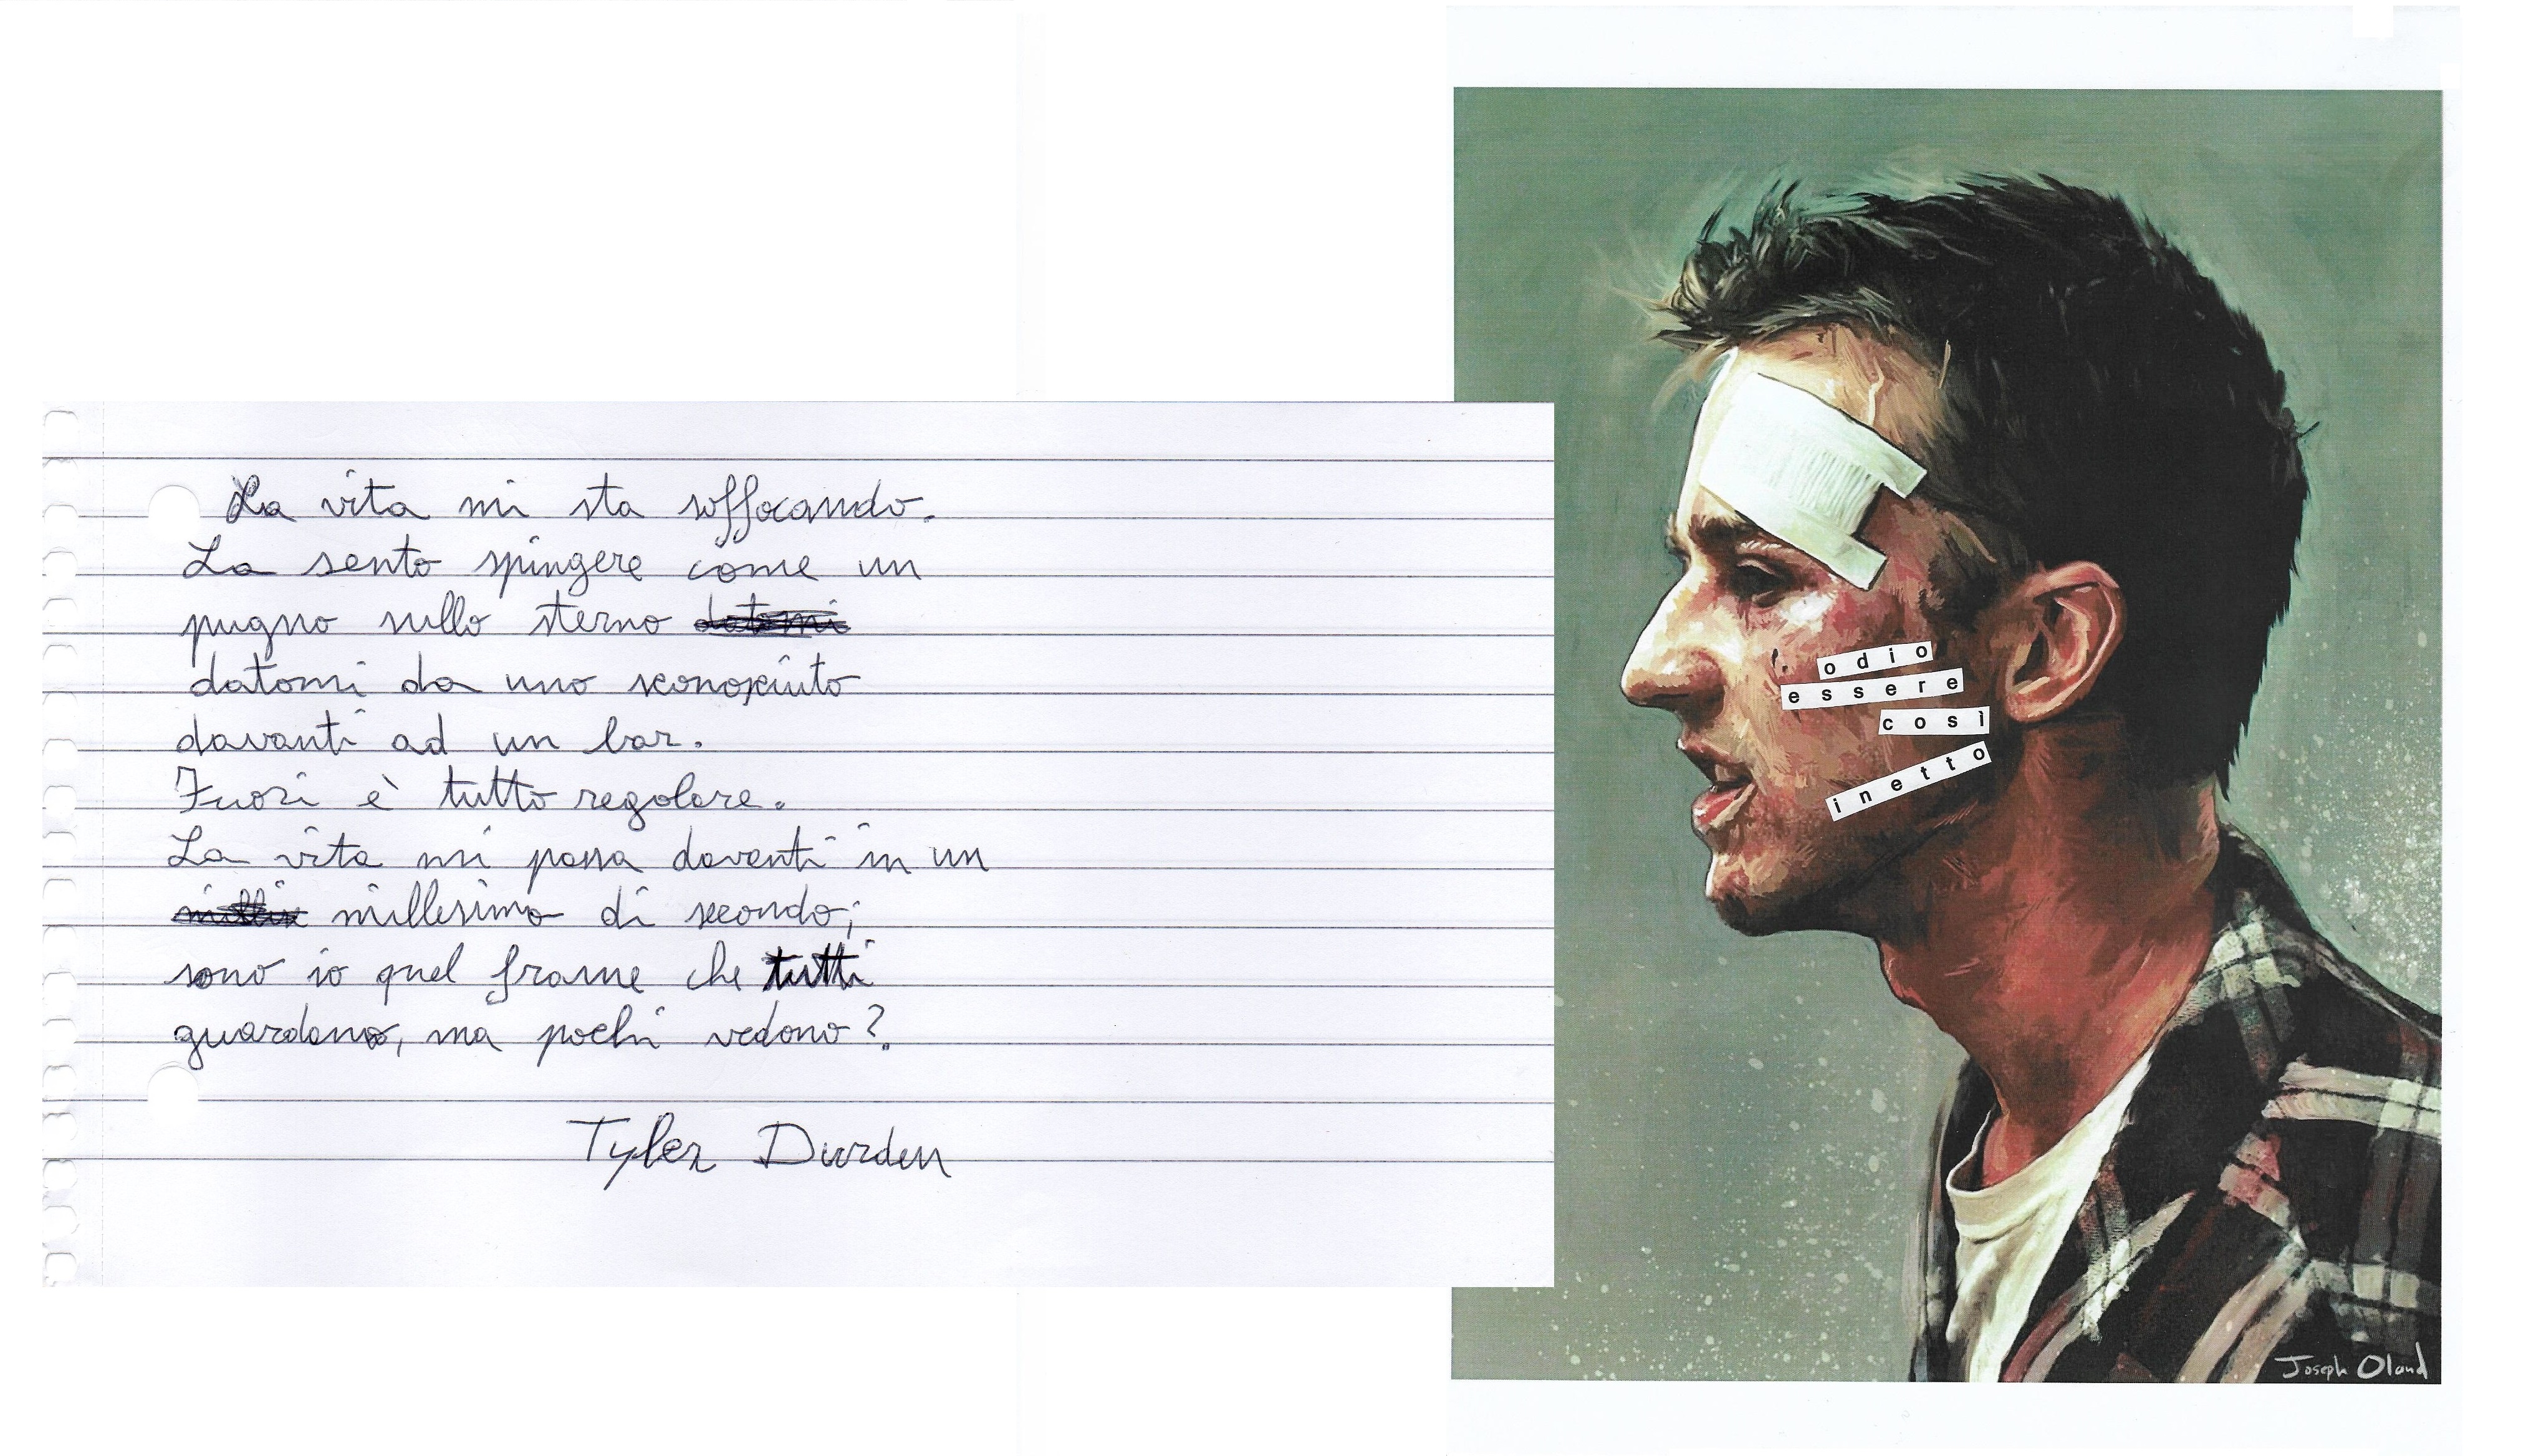 La vita mi sta soffocando.
La sento spingere come un
pugno sullo sterno datomi
datomi da uno sconosciuto
davanti ad un bar.
Fuori è tutto regolare.
La vita mi passa davanti in un
millesimo di secondo;
sono io quel frame che tutti
guardano, ma pochi vedono?
Tyler Durden
odio
essere
così
inetto
Joseph Oland